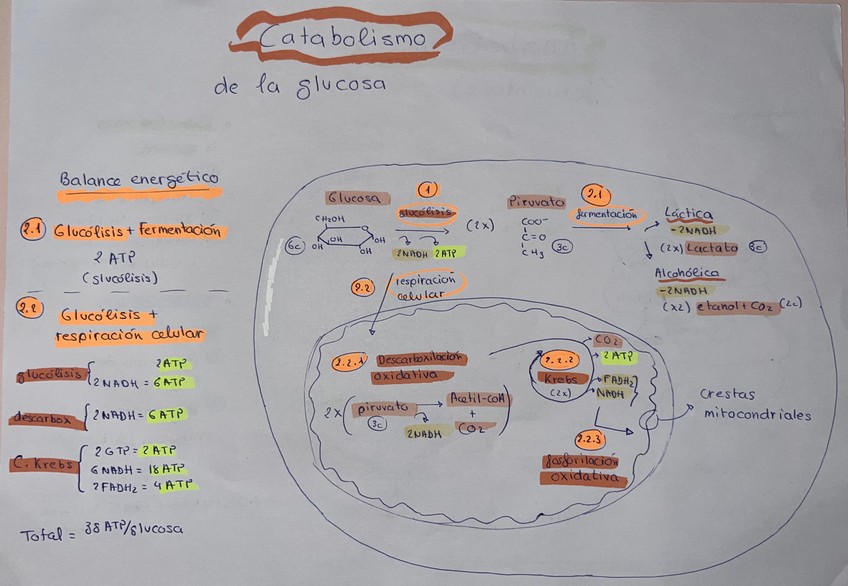 Catabolismo
de la glucosa
Balance energético
2.1 Glucólisis + Fermentación
2 ATP
(glucólisis)
2.2 Glucólisis +
respiración celular
glucólisis
2ATP
2 NADH = 6ATP
descarbox
2 NADH = 6 ATP
C. Krebs
2 GTP = 2 ATP
6 NADH = 18 ATP
2 FADH2 = 4 ATP
Total = 38 ATP/glucosa
Glucosa
6c
CH2OH
OH
OH
OH
OH
1
glucólisis
2NADH 2ATP
(2x)
Piruvato
COO-
C=O
CH3
3c
2.1
fermentación
Láctica
-2NADH
(2x) Lactato 3c
Alcohólica
-2NADH
(x2) etanol + CO2 (2c)
2.2
respiración
celular
2.2.1 Descarboxilación
oxidativa
2x( piruvato
3c
2NADH
Acetil-coA
+
CO2 )
2.2.2
Krebs
(2x)
CO2
2 ATP
FADH2
NADH
2.2.3
fosforilación
oxidativa
Crestas
mitocondriales